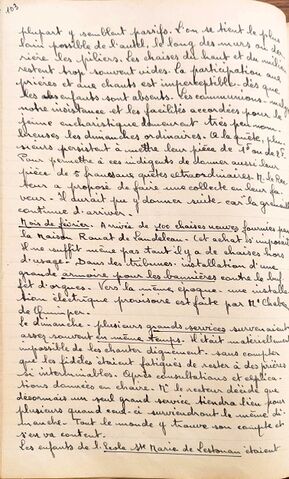 103
plupart y semblent passifs. L'on se tient le plus
loin possible de l'autel, le long des murs ou der-
rière les piliers. Les chaises du haut et du milieu
restent trop souvent vides. La participation aux
prières et aux chants est imperceptible dès que
les enfants sont absents. Les communions - malgré
notre insistance et les facilités accordées pour le
jeûne eucharistique demeurent très peu nom-
breuses les dimanches ordinaires. A la quête, plu-
sieurs persistent à mettre leur pièce de 1F ou de 2F.
Pour permettre à ces indigents de donner aussi leur
pièce de 5 francs aux quêtes extraordinaires. M. le Rec-
teur a proposé de faire une collecte en leur fa-
veur. Il aurait pu y donner suite car la
continue d'arriver.
Mois de février. Arrivée de 100 chaises neuves fournies par
la Maison Ranat de Landeleau. Cet achat s'imposait
Il ne suffit même pas tant il y a de chaises hors
d'usage. Dans les tribunes installation d'une
grande armoire pour les bannières contre le buf-
fet d'orgues. Vers la même époque une instal-
lation électrique provisoire est faite par Mr
de Quimper.
Le dimanche - plusieurs grands services survenaient
assez souvent en même temps. Il était matériellement
impossible de les chanter dignement. sans compter
que les fidèles étaient fatigués de rester à des prières
si interminables. Après consultations et explica-
tions données en chaire. Mr le recteur décide que
désormais un seul grand service tiendra lieu pour
plusieurs quand ceux-ci surviendront le même di-
manche. Tout le monde y trouve son compte et
s'en va content.
Les enfants de l'Ecole Ste Marie de Lestonan étaient